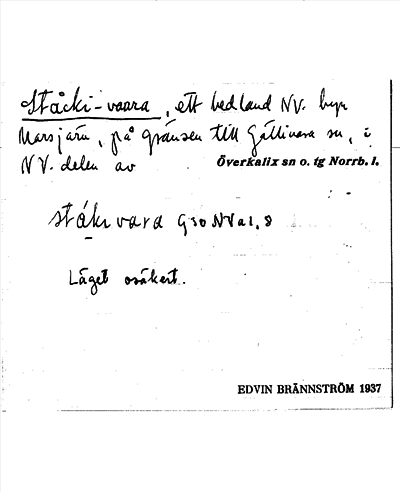 Ståcki-vaara, ett bedland NV. byn
Narsjärv, på gränsen till Gällivara sn, i
NV. delen av Överkalix sn o. tg Norrb. l.
Läget osäkert.
EDVIN BRÄNNSTRÖM 1937